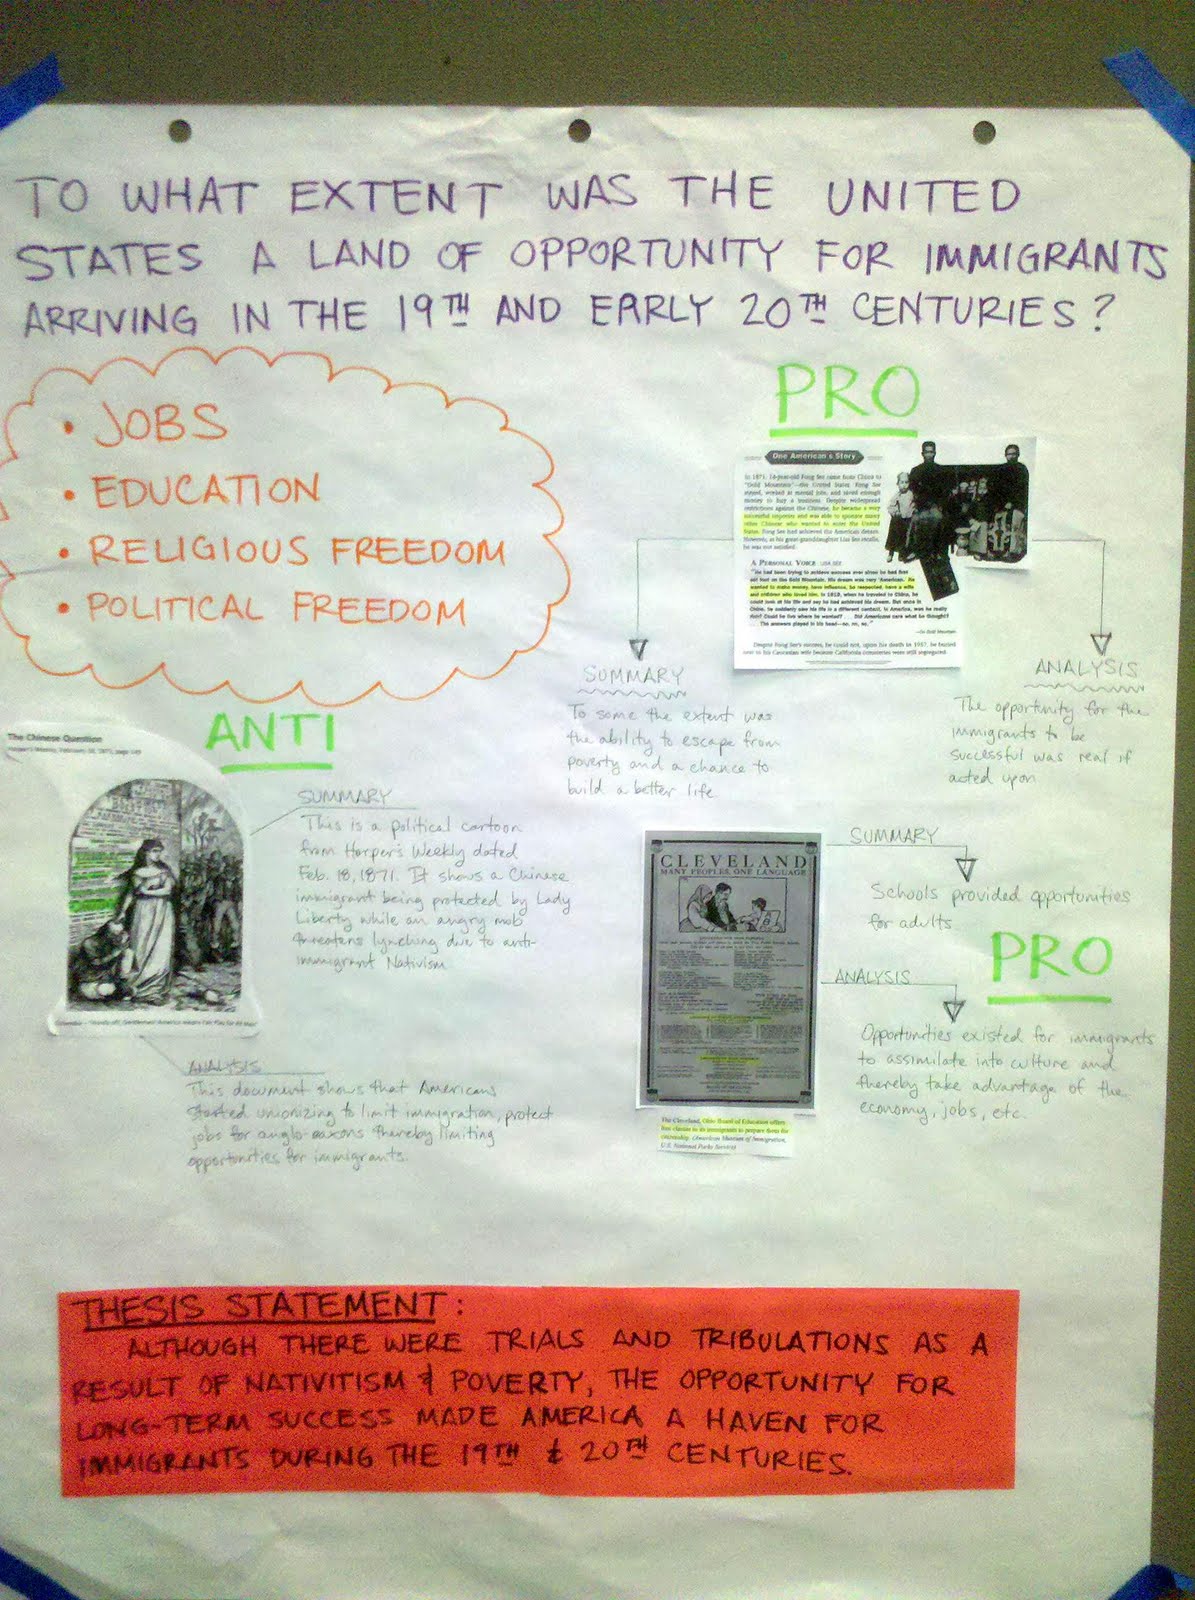 TO WHAT EXTENT WAS THE UNITED
STATES A LAND OF OPPORTUNITY FOR IMMIGRANTS
ARRIVING IN THE 19TH AND EARLY 20TH CENTURIES?
• JOBS
• EDUCATION
• RELIGIOUS FREEDOM
• POLITICAL FREEDOM
PRO
One American's Story
In 1871, 14-year-old Fong See came from China to
"Gold Mountain"—the United States. Fong See
stayed, worked at menial jobs, and saved enough
money to buy a business. Despite widespread
restrictions against the Chinese, he became a very
successful importer and was able to sponsor many
other Chinese who wanted to enter the United
States. Fong See had achieved the American dream.
However, as his great-granddaughter Lisa See recalls,
he was not satisfied.
A PERSONAL VOICE LISA SEE
"He had been trying to achieve success ever since he had first
set foot on the Gold Mountain. His dream was very 'American.' He
wanted to make money, have influence, be respected, have a wife
and children who loved him. In 1919, when he traveled to China, he
could look at his life and say he had achieved his dream. But once in
China, he suddenly saw his life in a different context. In America, was he really
rich? Could he live where he wanted? . . . Did Americans care what he thought?
. . . The answers played in his head—no, no, no."
—On Gold Mountain
Despite Fong See's success, he could not, upon his death in 1957, be buried
next to his Caucasian wife because California cemeteries were still segregated.
SUMMARY
To some the extent was
the ability to escape from
poverty and a chance to
build a better life
ANALYSIS
The opportunity for the
immigrants to be
successful was real if
acted upon
ANTI
The Chinese Question
Harper's Weekly, February 18, 1871, page 149
Columbia – "Hands off, Gentlemen! America means Fair Play for All Men"
SUMMARY
This is a political cartoon
from Harper's Weekly dated
Feb. 18, 1871. It shows a Chinese
immigrant being protected by Lady
Liberty while an angry mob
threatens lynching due to anti-
immigrant Nativism
ANALYSIS
This document shows that Americans
started unionizing to limit immigration, protect
jobs for anglo-saxons thereby limiting
opportunities for immigrants.
CLEVELAND
MANY PEOPLES, ONE LANGUAGE
The Cleveland, Ohio Board of Education offers
free classes to its immigrants to prepare them for
citizenship. (American Museum of Immigration,
U.S. National Parks Service)
SUMMARY
Schools provided opportunities
for adults
PRO
ANALYSIS
Opportunities existed for immigrants
to assimilate into culture and
thereby take advantage of the
economy, jobs, etc.
THESIS STATEMENT:
ALTHOUGH THERE WERE TRIALS AND TRIBULATIONS AS A
RESULT OF NATIVITISM & POVERTY, THE OPPORTUNITY FOR
LONG-TERM SUCCESS MADE AMERICA A HAVEN FOR
IMMIGRANTS DURING THE 19TH & 20TH CENTURIES.